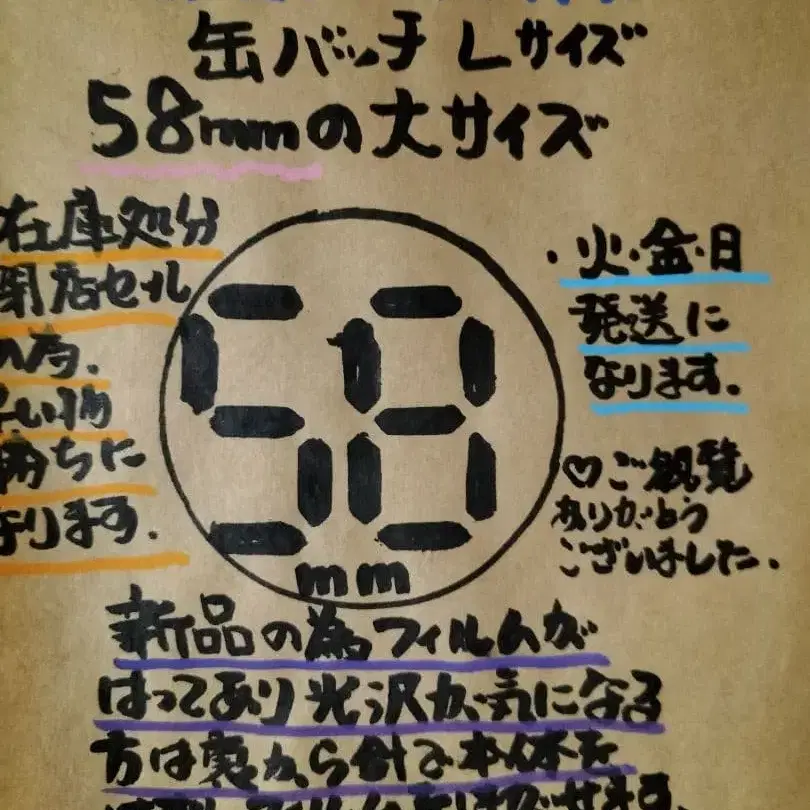 缶バッチ Lサイズ
58mmの大サイズ
在庫処分
閉店セル
の為.
早い物
勝ちに
なります.
58
mm
・火・金・日
発送に
なります.
♡ご観覧
ありがとう
ございました.
新品の為フィルムが
はってあり光沢が気になる
方は裏から針で本体を